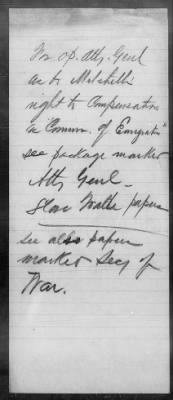 For op. Atty. Genl
as to Mitchell's
right to Compensation
as "Commr. of Emigratn"
see package marked
Atty Genl -
Slave Trade papers
see also papers
marked Secy of
War.